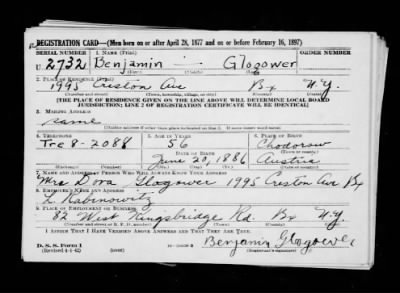 REGISTRATION CARD—(Men born on or after April 28, 1877 and on or before February 16, 1897)
SERIAL NUMBER 1. NAME (Print) ORDER NUMBER
U 2732 Benjamin — Glogower
(First) (Middle) (Last)
2. PLACE OF RESIDENCE (Print)
1995 Creston Ave Bx N.Y.
(Number and street) (Town, township, village, or city) (County) (State)
[THE PLACE OF RESIDENCE GIVEN ON THE LINE ABOVE WILL DETERMINE LOCAL BOARD
JURISDICTION; LINE 2 OF REGISTRATION CERTIFICATE WILL BE IDENTICAL]
3. MAILING ADDRESS
same
4. TELEPHONE 5. AGE IN YEARS 6. PLACE OF BIRTH
Tre 8-2088 56 Chodorow
DATE OF BIRTH (Town or county)
June 20, 1886 Austria
7. NAME AND ADDRESS OF PERSON WHO WILL ALWAYS KNOW YOUR ADDRESS
Mrs Dora Glogower 1995 Creston Ave Bx
8. EMPLOYER'S NAME AND ADDRESS
L. Rabinowitz
9. PLACE OF EMPLOYMENT OR BUSINESS
82 West Kingsbridge Rd. Bx N.Y.
(Number and street or R. F. D. number) (Town) (County) (State)
I AFFIRM THAT I HAVE VERIFIED ABOVE ANSWERS AND THAT THEY ARE TRUE.
D. S. S. Form 1
(Revised 4-1-42)
Benjamin Glogower
(Registrant's signature)